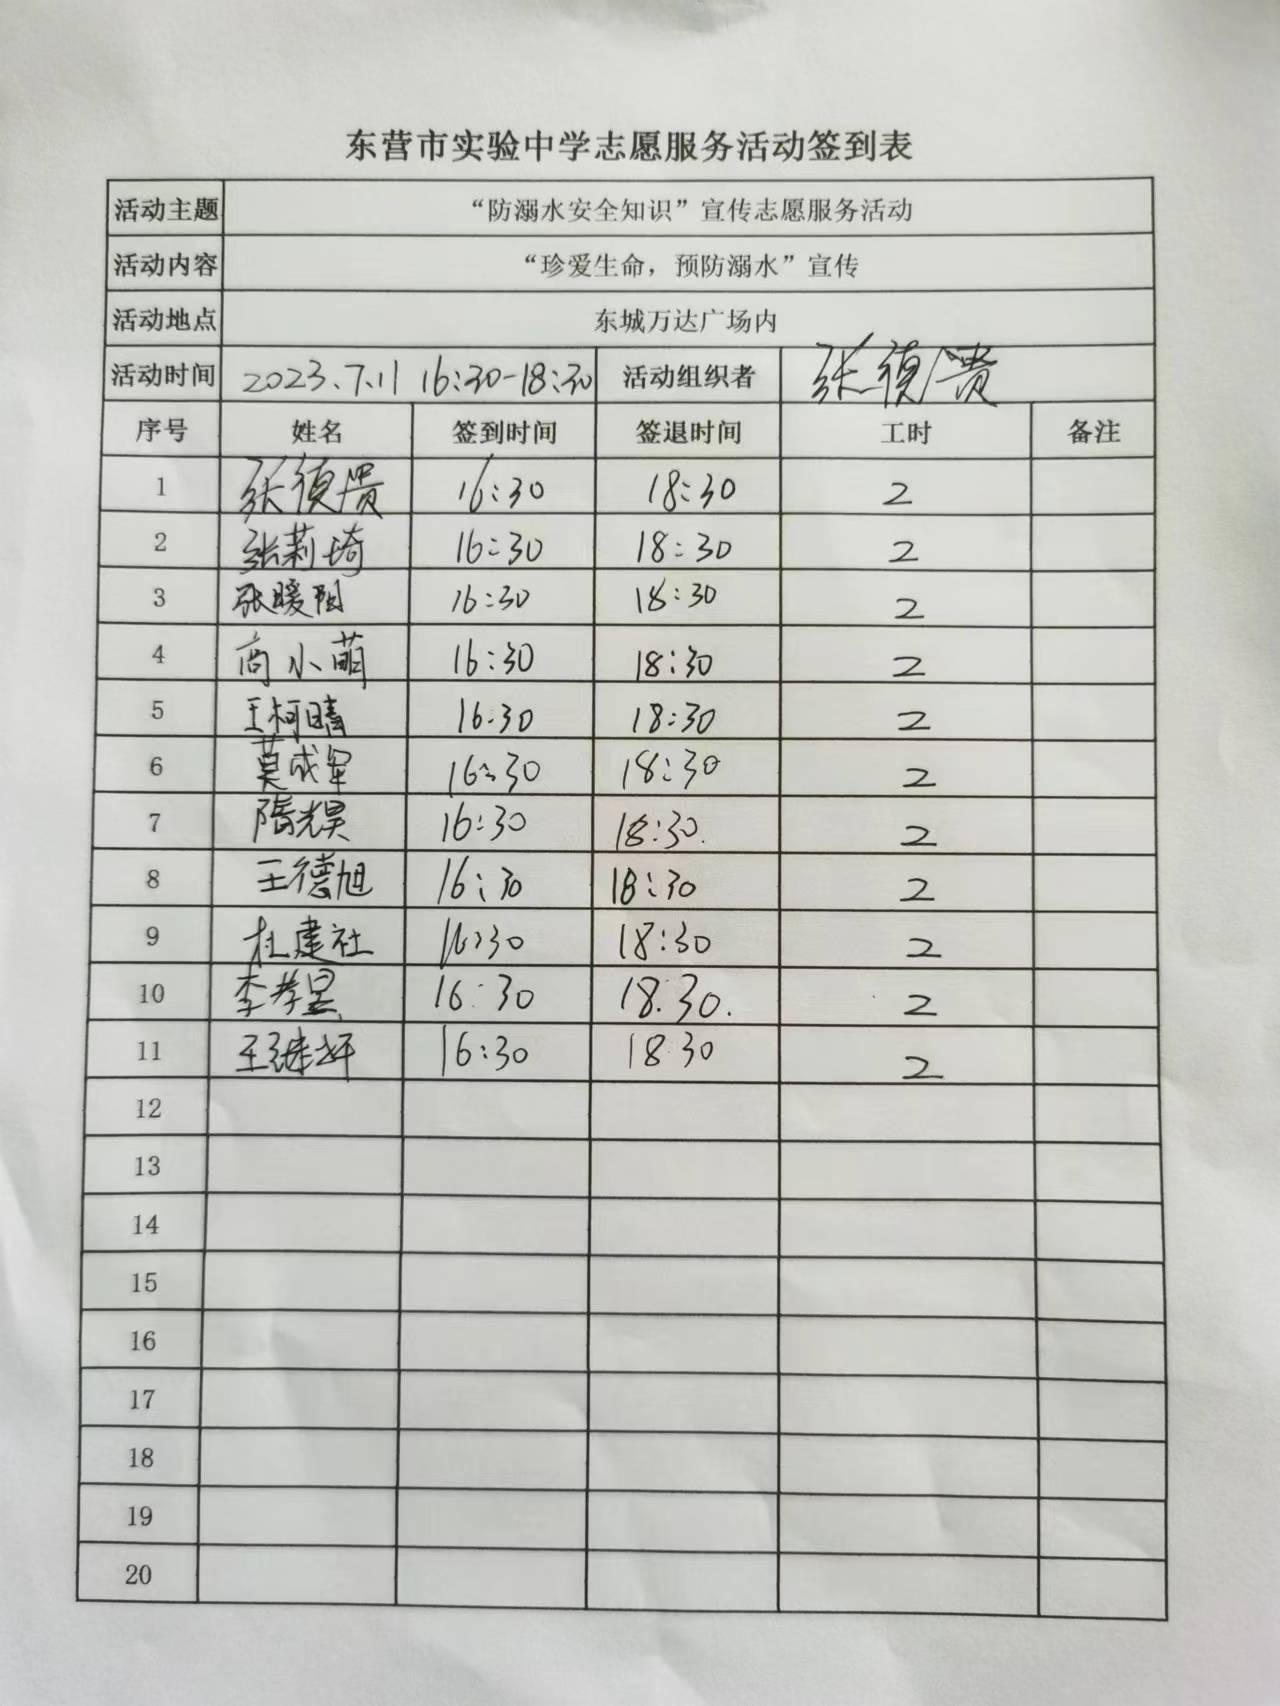 东营市实验中学志愿服务活动签到表
活动主题 “防溺水安全知识”宣传志愿服务活动
活动内容 “珍爱生命，预防溺水”宣传
活动地点 东城万达广场内
活动时间 2023.7.11 16:30-18:30 活动组织者 张德贵
序号 姓名 签到时间 签退时间 工时 备注
1 张德贵 16:30 18:30 2
2 张莉琦 16:30 18:30 2
3 张暖阳 16:30 18:30 2
4 商小萌 16:30 18:30 2
5 王柯晴 16:30 18:30 2
6 莫成军 16:30 18:30 2
7 隋光昊 16:30 18:30. 2
8 王德旭 16:30 18:30 2
9 杜建社 16:30 18:30 2
10 李孝昱 16:30 18:30. 2
11 王继妍 16:30 18:30 2
12
13
14
15
16
17
18
19
20